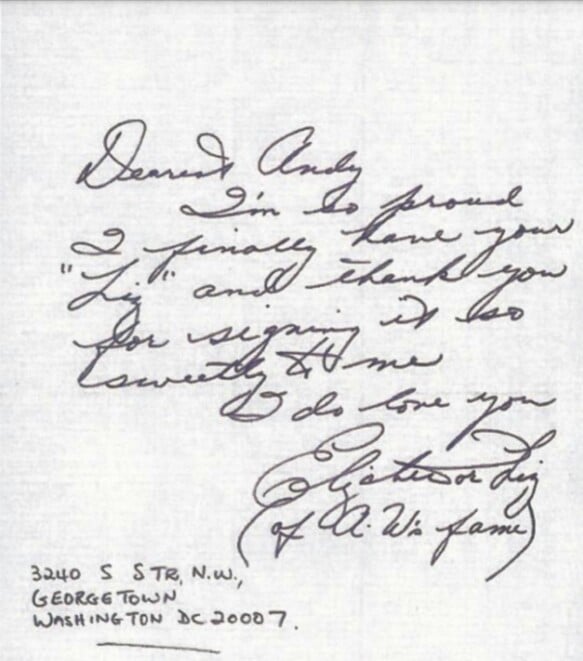 Dearest Andy
I'm so proud
I finally have your
"Liz" and thank you
for signing it so
sweetly to me
I do love you
Elizabeth or Liz
(of A. W's fame)
3240 S STR, N.W.,
GEORGETOWN
WASHINGTON DC 20007.